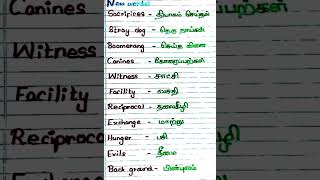 New words
Sacrifices - தியாகம் செய்தல்
Stray dog - தெரு நாய்கள்
Boomerang - செய்த வினை
Canines - கோரைப்பற்கள்
Witness - சாட்சி
Facility - வசதி
Reciprocal - தலைகீழி
Exchange - மாற்று
Hunger - பசி
Evils - தீமை
Back ground - பின்புலம்